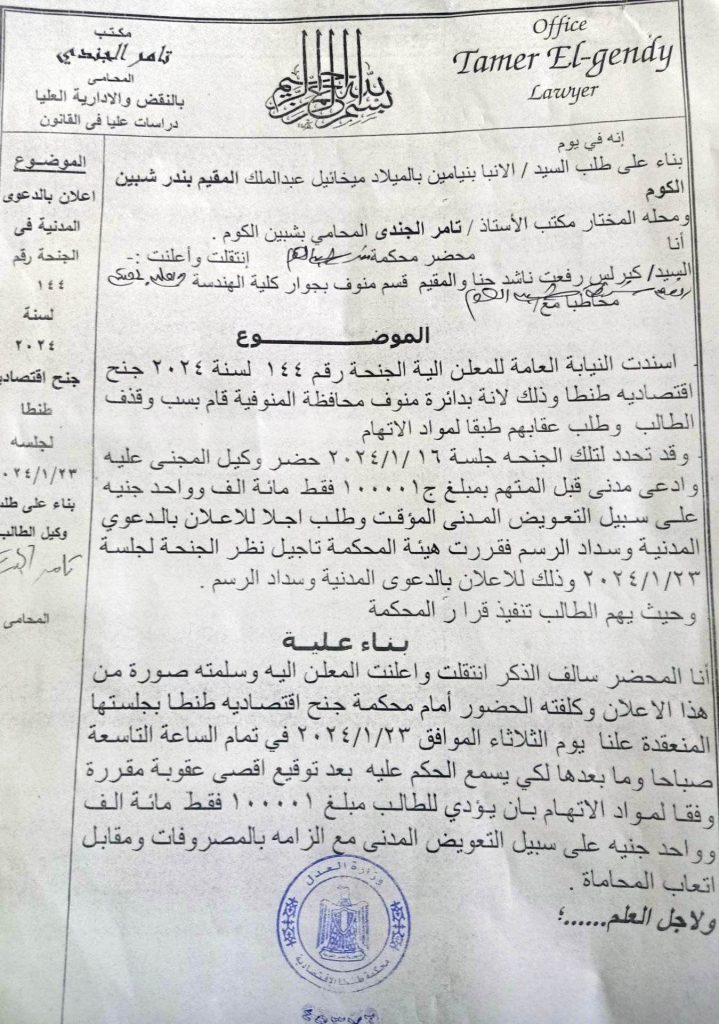 مكتب
تامر الجندي
المحامى
بالنقض والادارية العليا
دراسات عليا فى القانون
بسم الله الرحمن الرحيم
Office
Tamer El-gendy
Lawyer
الموضوع
اعلان بالدعوى
المدنية فى
الجنحة رقم
١٤٤
لسنة
٢٠٢٤
جنح اقتصاديه
طنطا
لجلسه
٢٠٢٤/١/٢٣
بناء على طلب
وكيل الطالب
المحامى
إنه في يوم
بناء على طلب السيد / الانبا بنيامين بالميلاد ميخائيل عبدالملك المقيم بندر شبين
الكوم
ومحله المختار مكتب الأستاذ / تامر الجندى المحامي بشبين الكوم .
أنا محضر محكمة إنتقلت وأعلنت :-
السيد/ كيرلس رفعت ناشد حنا والمقيم قسم منوف بجوار كلية الهندسة
مخاطبا مع/
الموضـــــــــوع
اسندت النيابة العامة للمعلن الية الجنحة رقم ١٤٤ لسنة ٢٠٢٤ جنح
اقتصاديه طنطا وذلك لانة بدائرة منوف محافظة المنوفية قام بسب وقذف
الطالب وطلب عقابهم طبقا لمواد الاتهام
وقد تحدد لتلك الجنحه جلسة ٢٠٢٤/١/١٦ حضر وكيل المجنى عليه
وادعى مدنى قبل المتهم بمبلغ ج١٠٠٠٠١ فقط مائة الف وواحد جنيه
على سبيل التعويض المدنى المؤقت وطلب اجلا للاعلان بالدعوي
المدنية وسداد الرسم فقررت هيئة المحكمة تاجيل نظر الجنحة لجلسة
٢٠٢٤/١/٢٣ وذلك للاعلان بالدعوى المدنية وسداد الرسم .
وحيث يهم الطالب تنفيذ قرار المحكمة
بناء علية
أنا المحضر سالف الذكر انتقلت واعلنت المعلن اليه وسلمته صورة من
هذا الاعلان وكلفته الحضور أمام محكمة جنح اقتصاديه طنطا بجلستها
المنعقدة علنا يوم الثلاثاء الموافق ٢٠٢٤/١/٢٣ في تمام الساعة التاسعة
صباحا وما بعدها لكي يسمع الحكم عليه بعد توقيع اقصى عقوبة مقررة
وفقا لمواد الاتهام بان يؤدي للطالب مبلغ ١٠٠٠٠١ فقط مائة الف
وواحد جنيه على سبيل التعويض المدنى مع الزامه بالمصروفات ومقابل
اتعاب المحاماة .
ولاجل العلم......؛
وزارة العدل
محكمة طنطا الاقتصادية